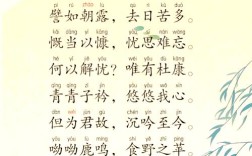 pì rú zhāo lù qù rì kǔ duō
譬如朝露，去日苦多。
kǎi dāng yǐ kāng yōu sī nán wàng
慨当以慷，忧思难忘。
hé yǐ jiě yōu wéi yǒu dù kāng
何以解忧？唯有杜康。
qīng qīng zǐ jīn yōu yōu wǒ xīn
青青子衿，悠悠我心。
dàn wèi jūn gù chén yín zhì jīn
但为君故，沉吟至今。
yōu yōu lù míng shí yě zhī píng
呦呦鹿鸣，食野之苹。